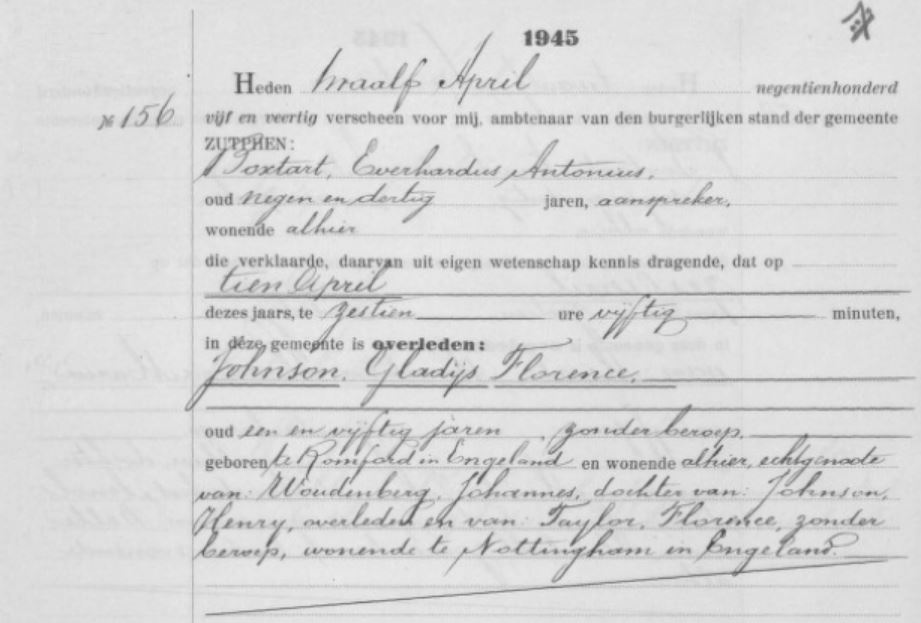 1945
Heden twaalf April negentienhonderd
№ 156 vijf en veertig verscheen voor mij, ambtenaar van den burgerlijken stand der gemeente
ZUTPHEN:
Poxtart, Everhardus Antonius,
oud negen en dertig jaren, aanspreker,
wonende alhier
die verklaarde, daarvan uit eigen wetenschap kennis dragende, dat op
tien April
dezes jaars, te zestien ure vijftig minuten,
in deze gemeente is overleden:
Johnson, Gladijs Florence,
oud een en vijftig jaren, zonder beroep,
geboren te Romford in Engeland en wonende alhier, echtgenoote
van: Woudenberg, Johannes, dochter van: Johnson,
Henry, overleden en van: Taylor, Florence, zonder
beroep, wonende te Nottingham in Engeland.